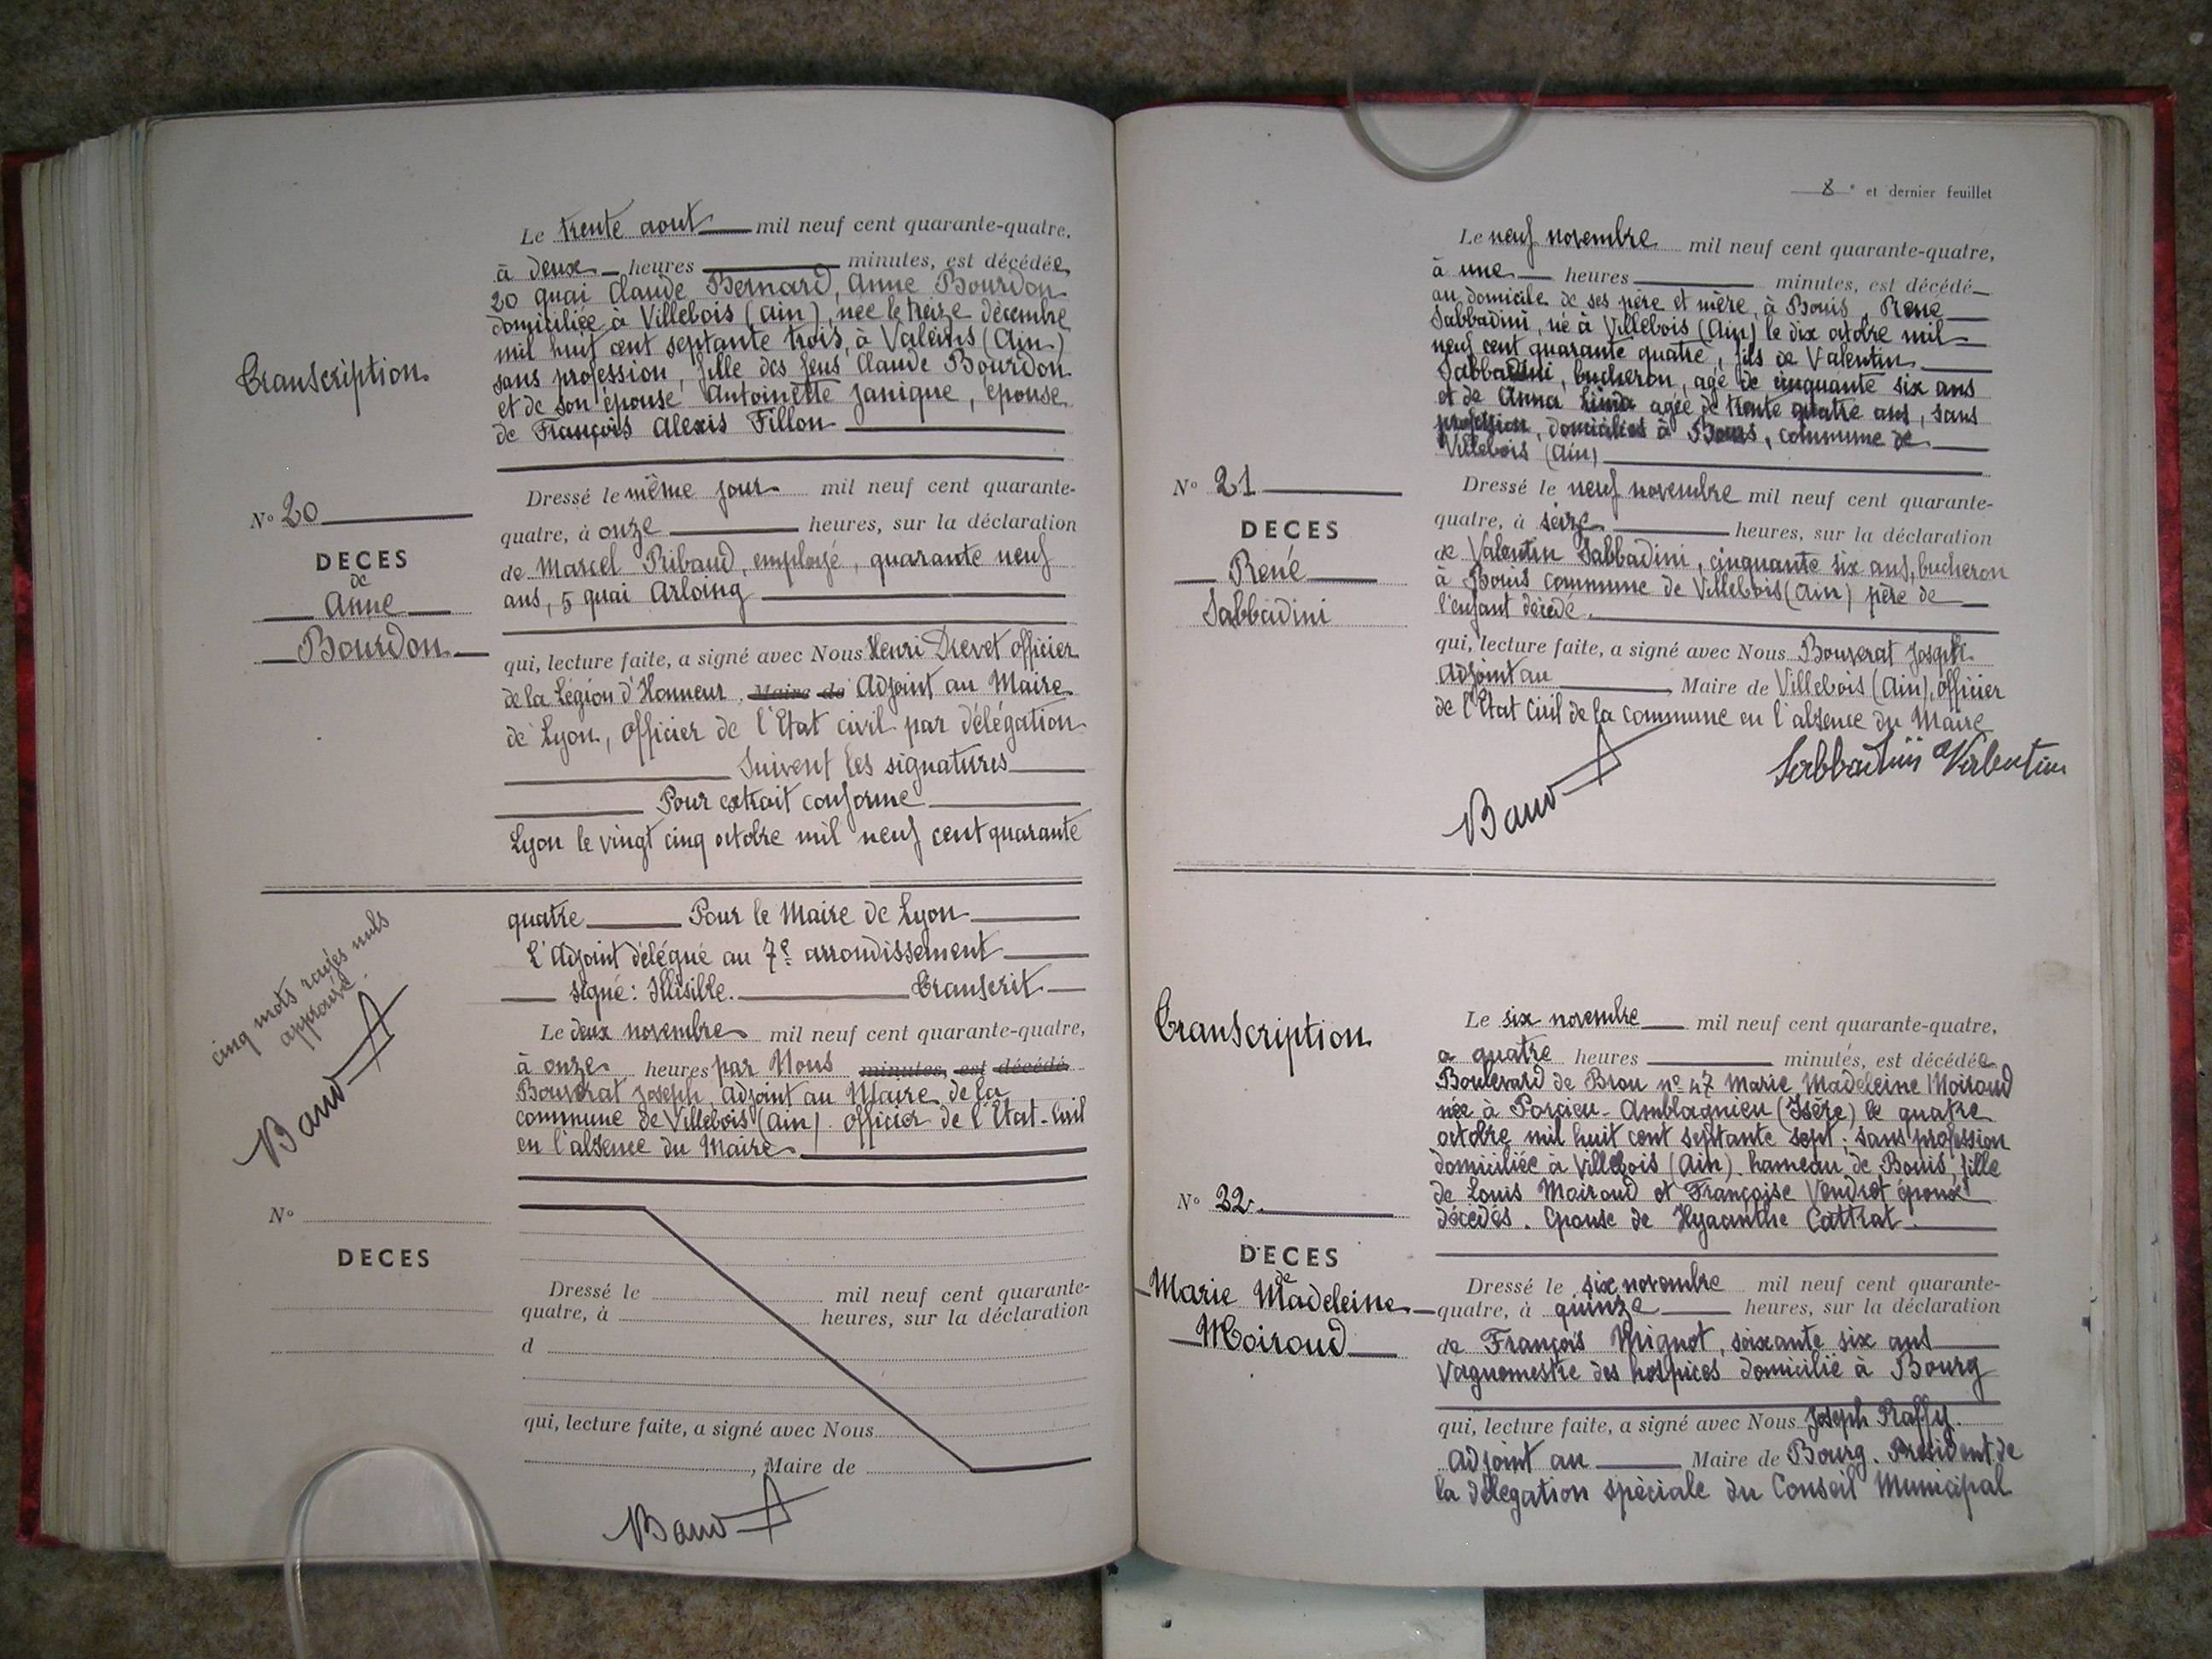 Transcription
Le trente aout mil neuf cent quarante-quatre,
à deux heures minutes, est décédée
20 quai Claude Bernard, Anne Bourdon
domiciliée à Villebois (Ain), née le treize décembre
mil huit cent septante trois, à Valeins (Ain)
sans profession, fille des feus Claude Bourdon
et de son épouse Antoinette Janique, épouse
de François Alexis Fillon
N° 20
DECES
de
Anne
Bourdon
Dressé le même jour mil neuf cent quarante-
quatre, à onze heures, sur la déclaration
de Marcel Ribaud, employé, quarante neuf
ans, 5 quai Arloing
qui, lecture faite, a signé avec Nous Henri Drevet officier
de la Légion d'Honneur, Maire de Adjoint au Maire
de Lyon, Officier de l'Etat civil par délégation
Suivent les signatures
Pour extrait conforme
Lyon le vingt cinq octobre mil neuf cent quarante
quatre Pour le Maire de Lyon
L'Adjoint délégué au 7e arrondissement
signé: Illisible. Transcrit
cinq mots rayés nuls
approuvé.
Le deux novembre mil neuf cent quarante-quatre,
à onze heures par Nous minutes, est décédé
Bouvrat Joseph, Adjoint au Maire de la
commune de Villebois (Ain). Officier de l'Etat-Civil
en l'absence du Maire
N°
DECES
Dressé le mil neuf cent quarante-
quatre, à heures, sur la déclaration
d
qui, lecture faite, a signé avec Nous
, Maire de
8e et dernier feuillet
Le neuf novembre mil neuf cent quarante-quatre,
à une heures minutes, est décédé
au domicile de ses père et mère, à Bouis, René
Sabbadini, né à Villebois (Ain) le dix octobre mil
neuf cent quarante quatre, fils de Valentin
Sabbadini, bucheron, agé de cinquante six ans
et de Anna agée de trente quatre ans, sans
profession, domiciliés à Bouis, commune de
Villebois (Ain)
N° 21
DECES
René
Sabbadini
Dressé le neuf novembre mil neuf cent quarante-
quatre, à seize heures, sur la déclaration
de Valentin Sabbadini, cinquante six ans, bucheron
à Bouis commune de Villebois (Ain) père de
l'enfant décédé.
qui, lecture faite, a signé avec Nous Bouvrat Joseph
Adjoint au , Maire de Villebois (Ain), officier
de l'Etat Civil de la commune en l'absence du Maire
Sabbadini Valentin
Transcription
Le six novembre mil neuf cent quarante-quatre,
a quatre heures minutes, est décédée
Boulevard de Brou n° 47 Marie Madeleine Moiroud
née à Porcieu-Amblagnieu (Isère) le quatre
octobre mil huit cent septante sept; sans profession
domiciliée à Villebois (Ain) hameau de Bouis, fille
de Louis Moiroud et Françoise Vendret époux
décédés. Epouse de Hyacinthe Cattrat.
N° 22.
DECES
de
Marie Madeleine
Moiroud
Dressé le six novembre mil neuf cent quarante-
quatre, à quinze heures, sur la déclaration
de François Mignot, soixante six ans
Vaguemestre des hospices domicilié à Bourg
qui, lecture faite, a signé avec Nous Joseph Raffy.
Adjoint au Maire de Bourg. Président de
la délégation spéciale du Conseil Municipal